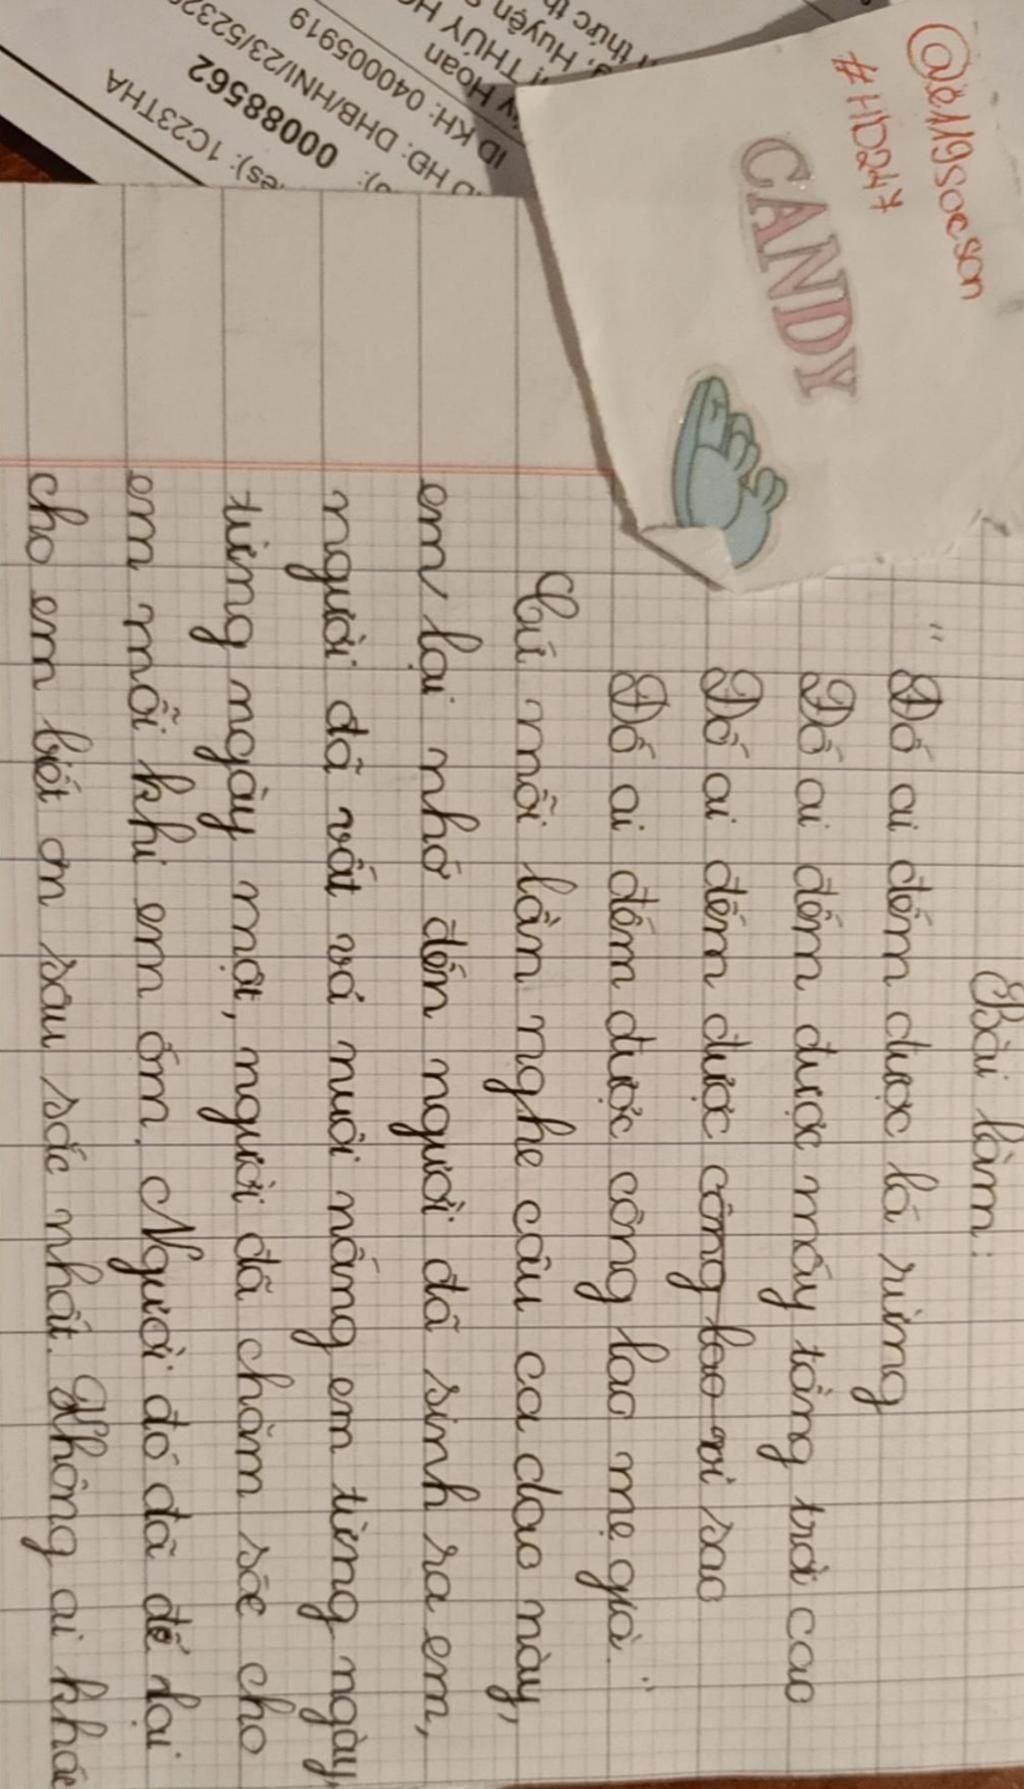 @e119socson
#HD247
CANDY
es): 1C23THA
00088562
HĐ: DHB/HNI/23/52232
ID KH: 0400005919
Hoàn
THUY
, Huyện
thức
Bài làm:
" Đố ai đếm được lá rừng
Đố ai đếm được mấy tầng trời cao
Đố ai đếm được công lao vì sao
Đố ai đếm được công lao mẹ già. "
Cứ mỗi lần nghe câu ca dao này,
em lại nhớ đến người đã sinh ra em,
người đã vất vả nuôi nấng em từng ngày,
từng ngày một, người đã chăm sóc cho
em mỗi khi em ốm. Người đó đã để lại
cho em biết ơn sâu sắc nhất. Không ai khác